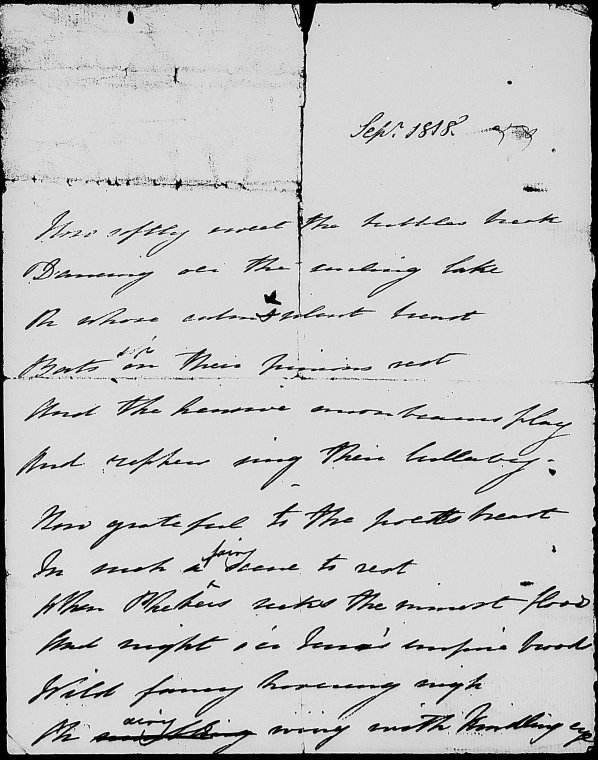 Sepr. 1818.
How softly sweet the bubbles break
Dancing oer the smiling lake
On whose calm & silent breast
Boats on their pinions rest
And the pensive moonbeams play
And zephers sing their lullaby.
How grateful to the poets breast
In such a fairy scene to rest
When Phebus seeks the inmost flood
And night o'er Juno's empire broods
Wild fancy hovering nigh
On airy wing with kindling eye